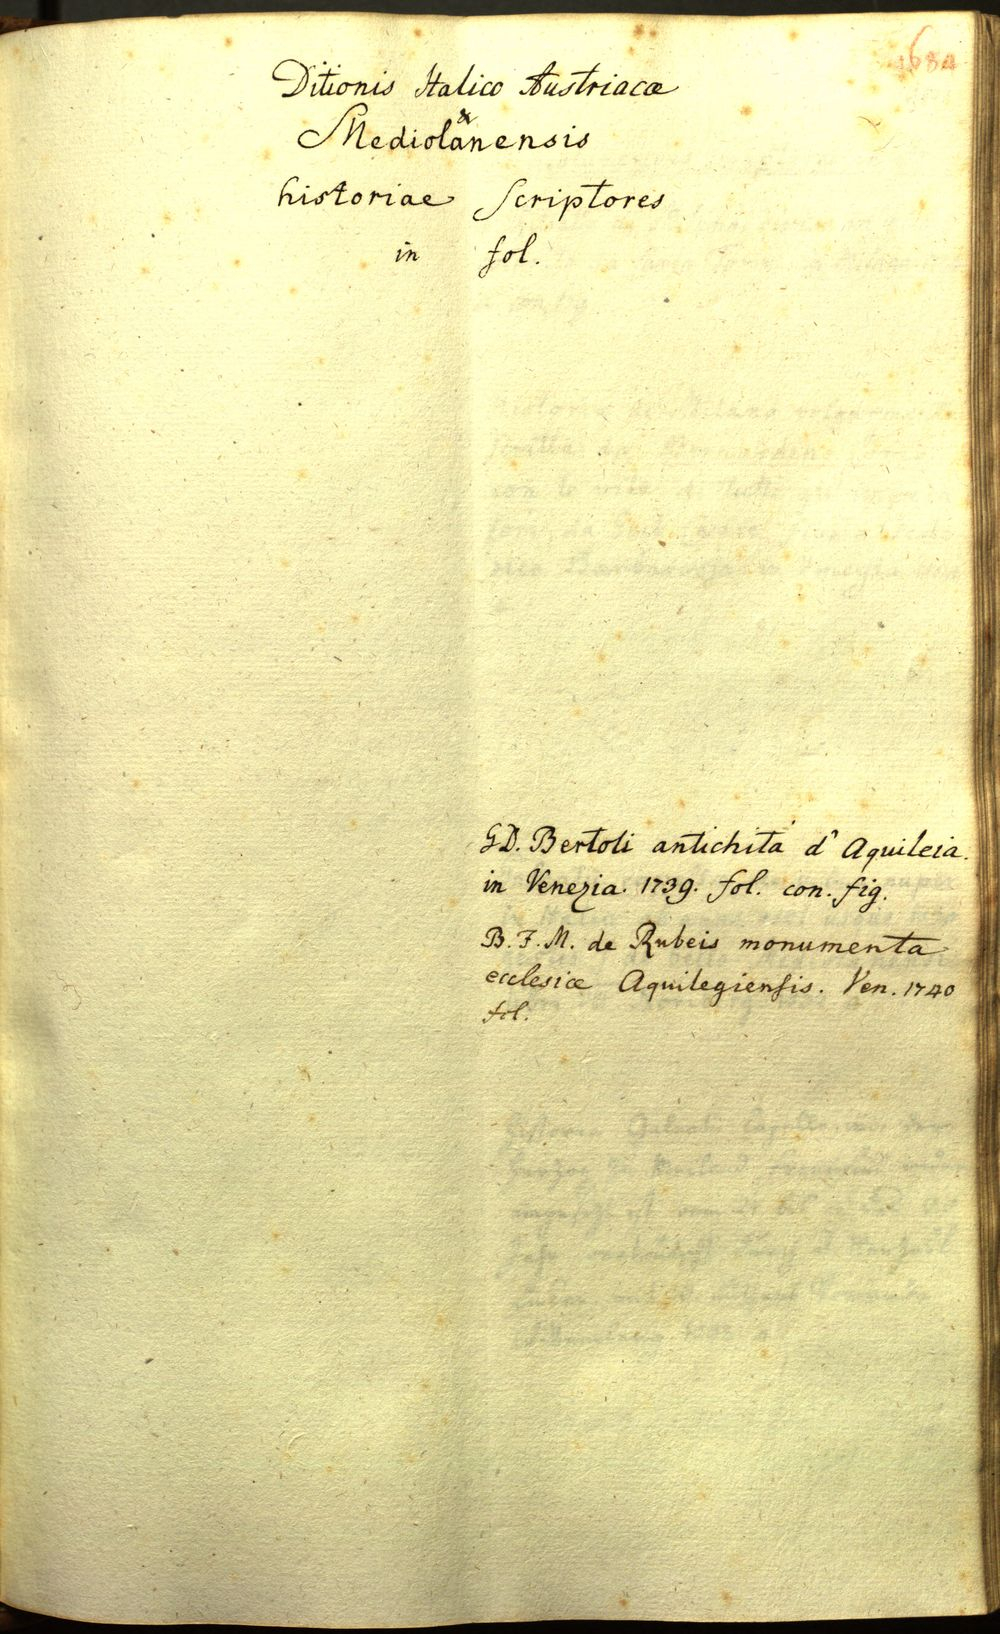 1684
Ditionis Italico Austriacæ
&
Mediolanensis
historiae Scriptores
in fol.
G.D. Bertoli antichità d' Aquileia.
in Venezia. 1739. fol. con. fig.
B. F. M. de Rubeis monumenta
ecclesiæ Aquilegiensis. Ven. 1740
fol.